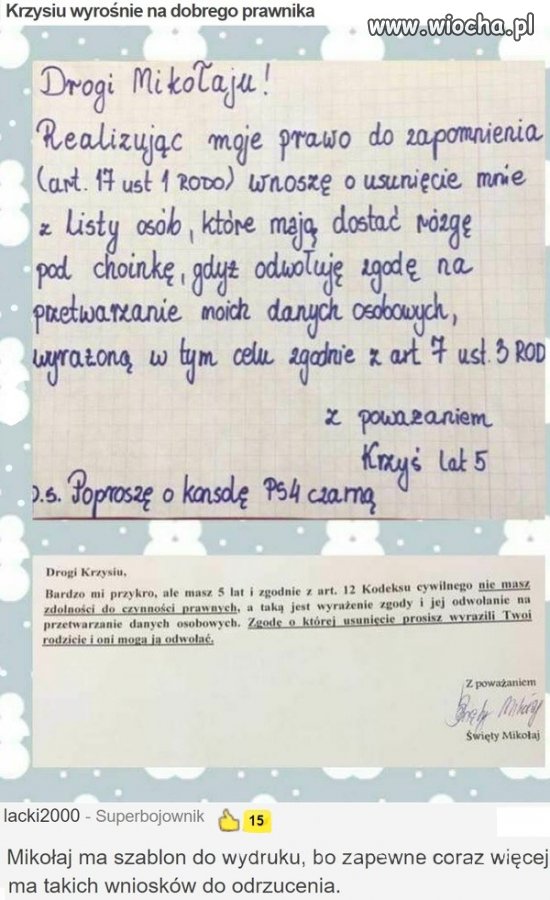 Krzysiu wyrośnie na dobrego prawnika
www.wiocha.pl
Drogi Mikołaju!
Realizując moje prawo do zapomnienia
(art. 17 ust 1 RODO) wnoszę o usunięcie mnie
z listy osób, które mają dostać rózgę
pod choinkę, gdyż odwołuję zgodę na
przetwarzanie moich danych osobowych,
wyrażoną w tym celu zgodnie z art 7 ust. 3 ROD
z poważaniem
Krzyś lat 5
p.s. Poproszę o konsolę PS4 czarną
Drogi Krzysiu,
Bardzo mi przykro, ale masz 5 lat i zgodnie z art. 12 Kodeksu cywilnego nie masz
zdolności do czynności prawnych, a taką jest wyrażenie zgody i jej odwołanie na
przetwarzanie danych osobowych. Zgodę o której usunięcie prosisz wyrazili Twoi
rodzicie i oni mogą ją odwołać.
Z poważaniem
Święty Mikołaj
Święty Mikołaj
lacki2000 - Superbojownik 15
Mikołaj ma szablon do wydruku, bo zapewne coraz więcej
ma takich wniosków do odrzucenia.